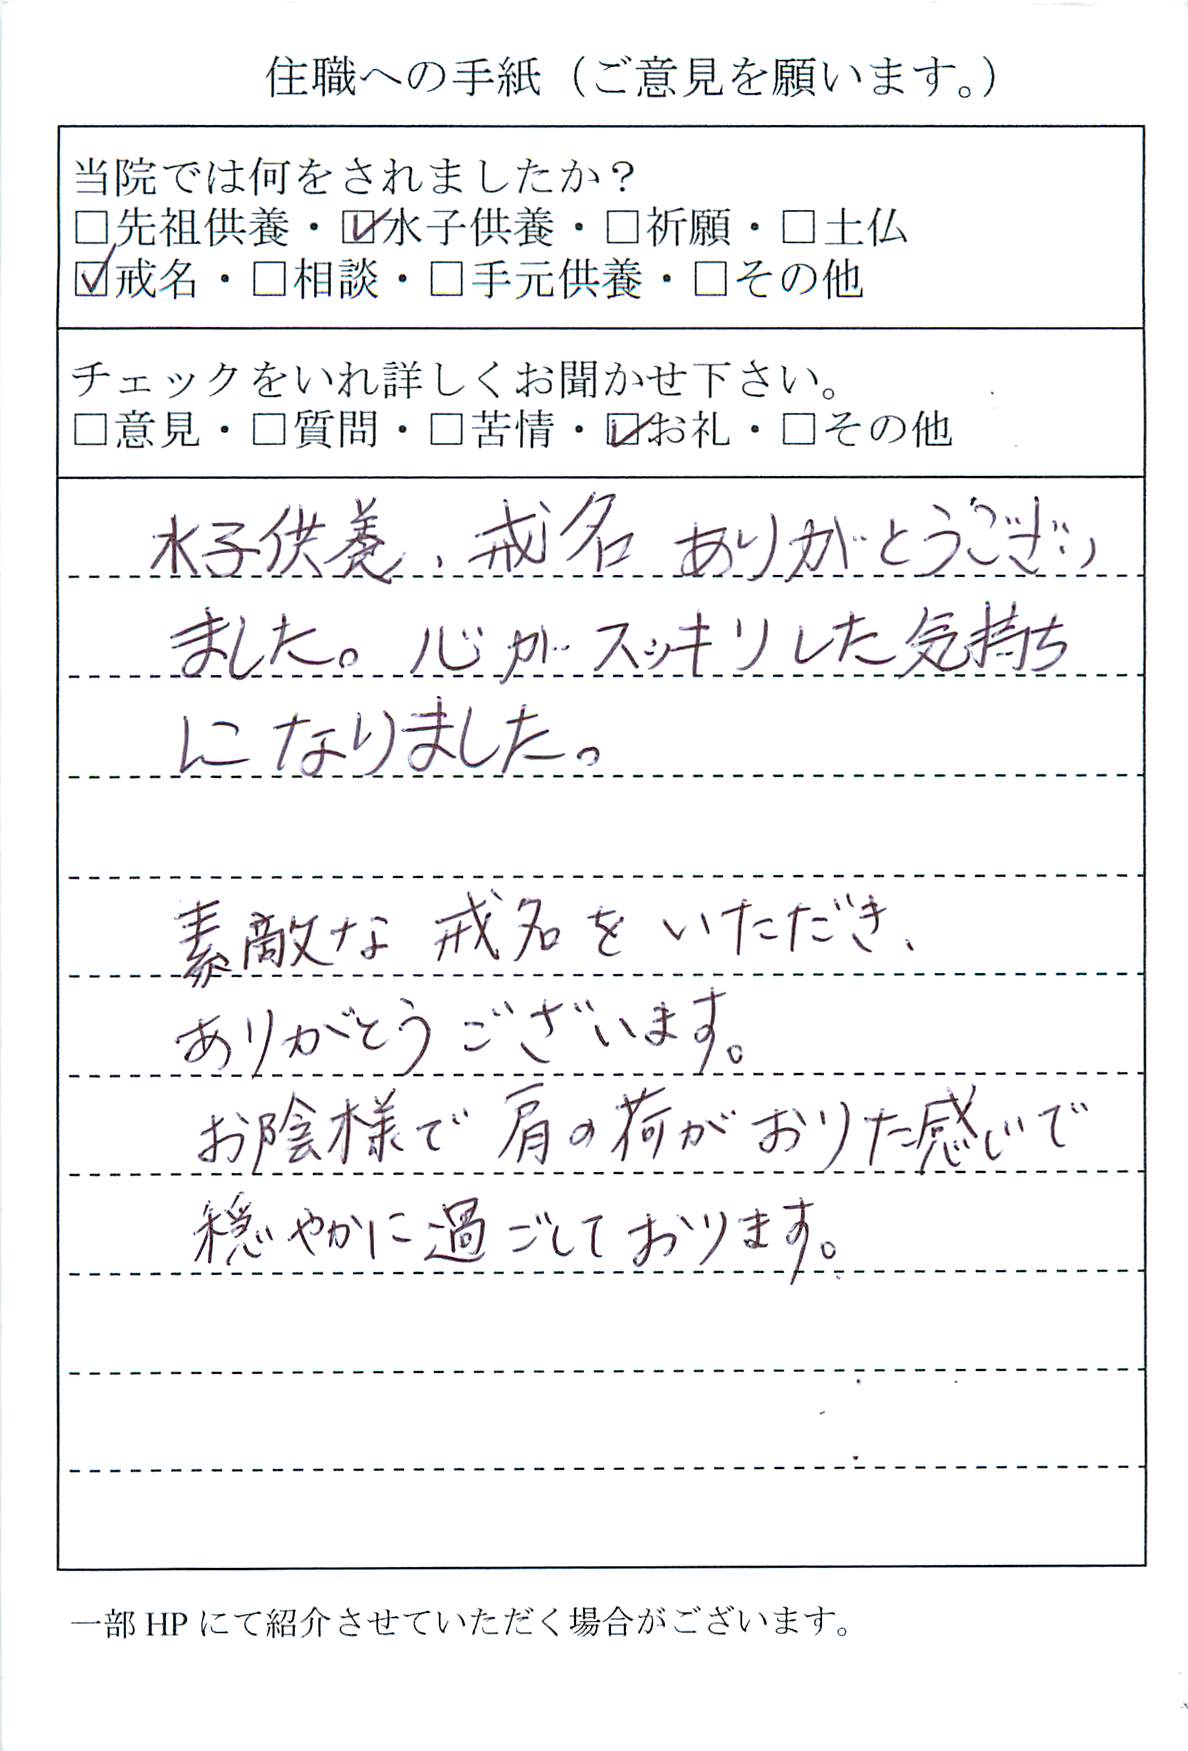 住職への手紙（ご意見を願います。）
当院では何をされましたか？
□先祖供養・☑水子供養・□祈願・□土仏
☑戒名・□相談・□手元供養・□その他
チェックをいれ詳しくお聞かせ下さい。
□意見・□質問・□苦情・☑お礼・□その他
水子供養、戒名 ありがとうござい
ました。心がスッキリした気持ち
になりました。
素敵な 戒名を いただき、
ありがとうございます。
お陰様で肩の荷がおりた感じで
穏やかに過ごしております。
一部 HP にて紹介させていただく場合がございます。